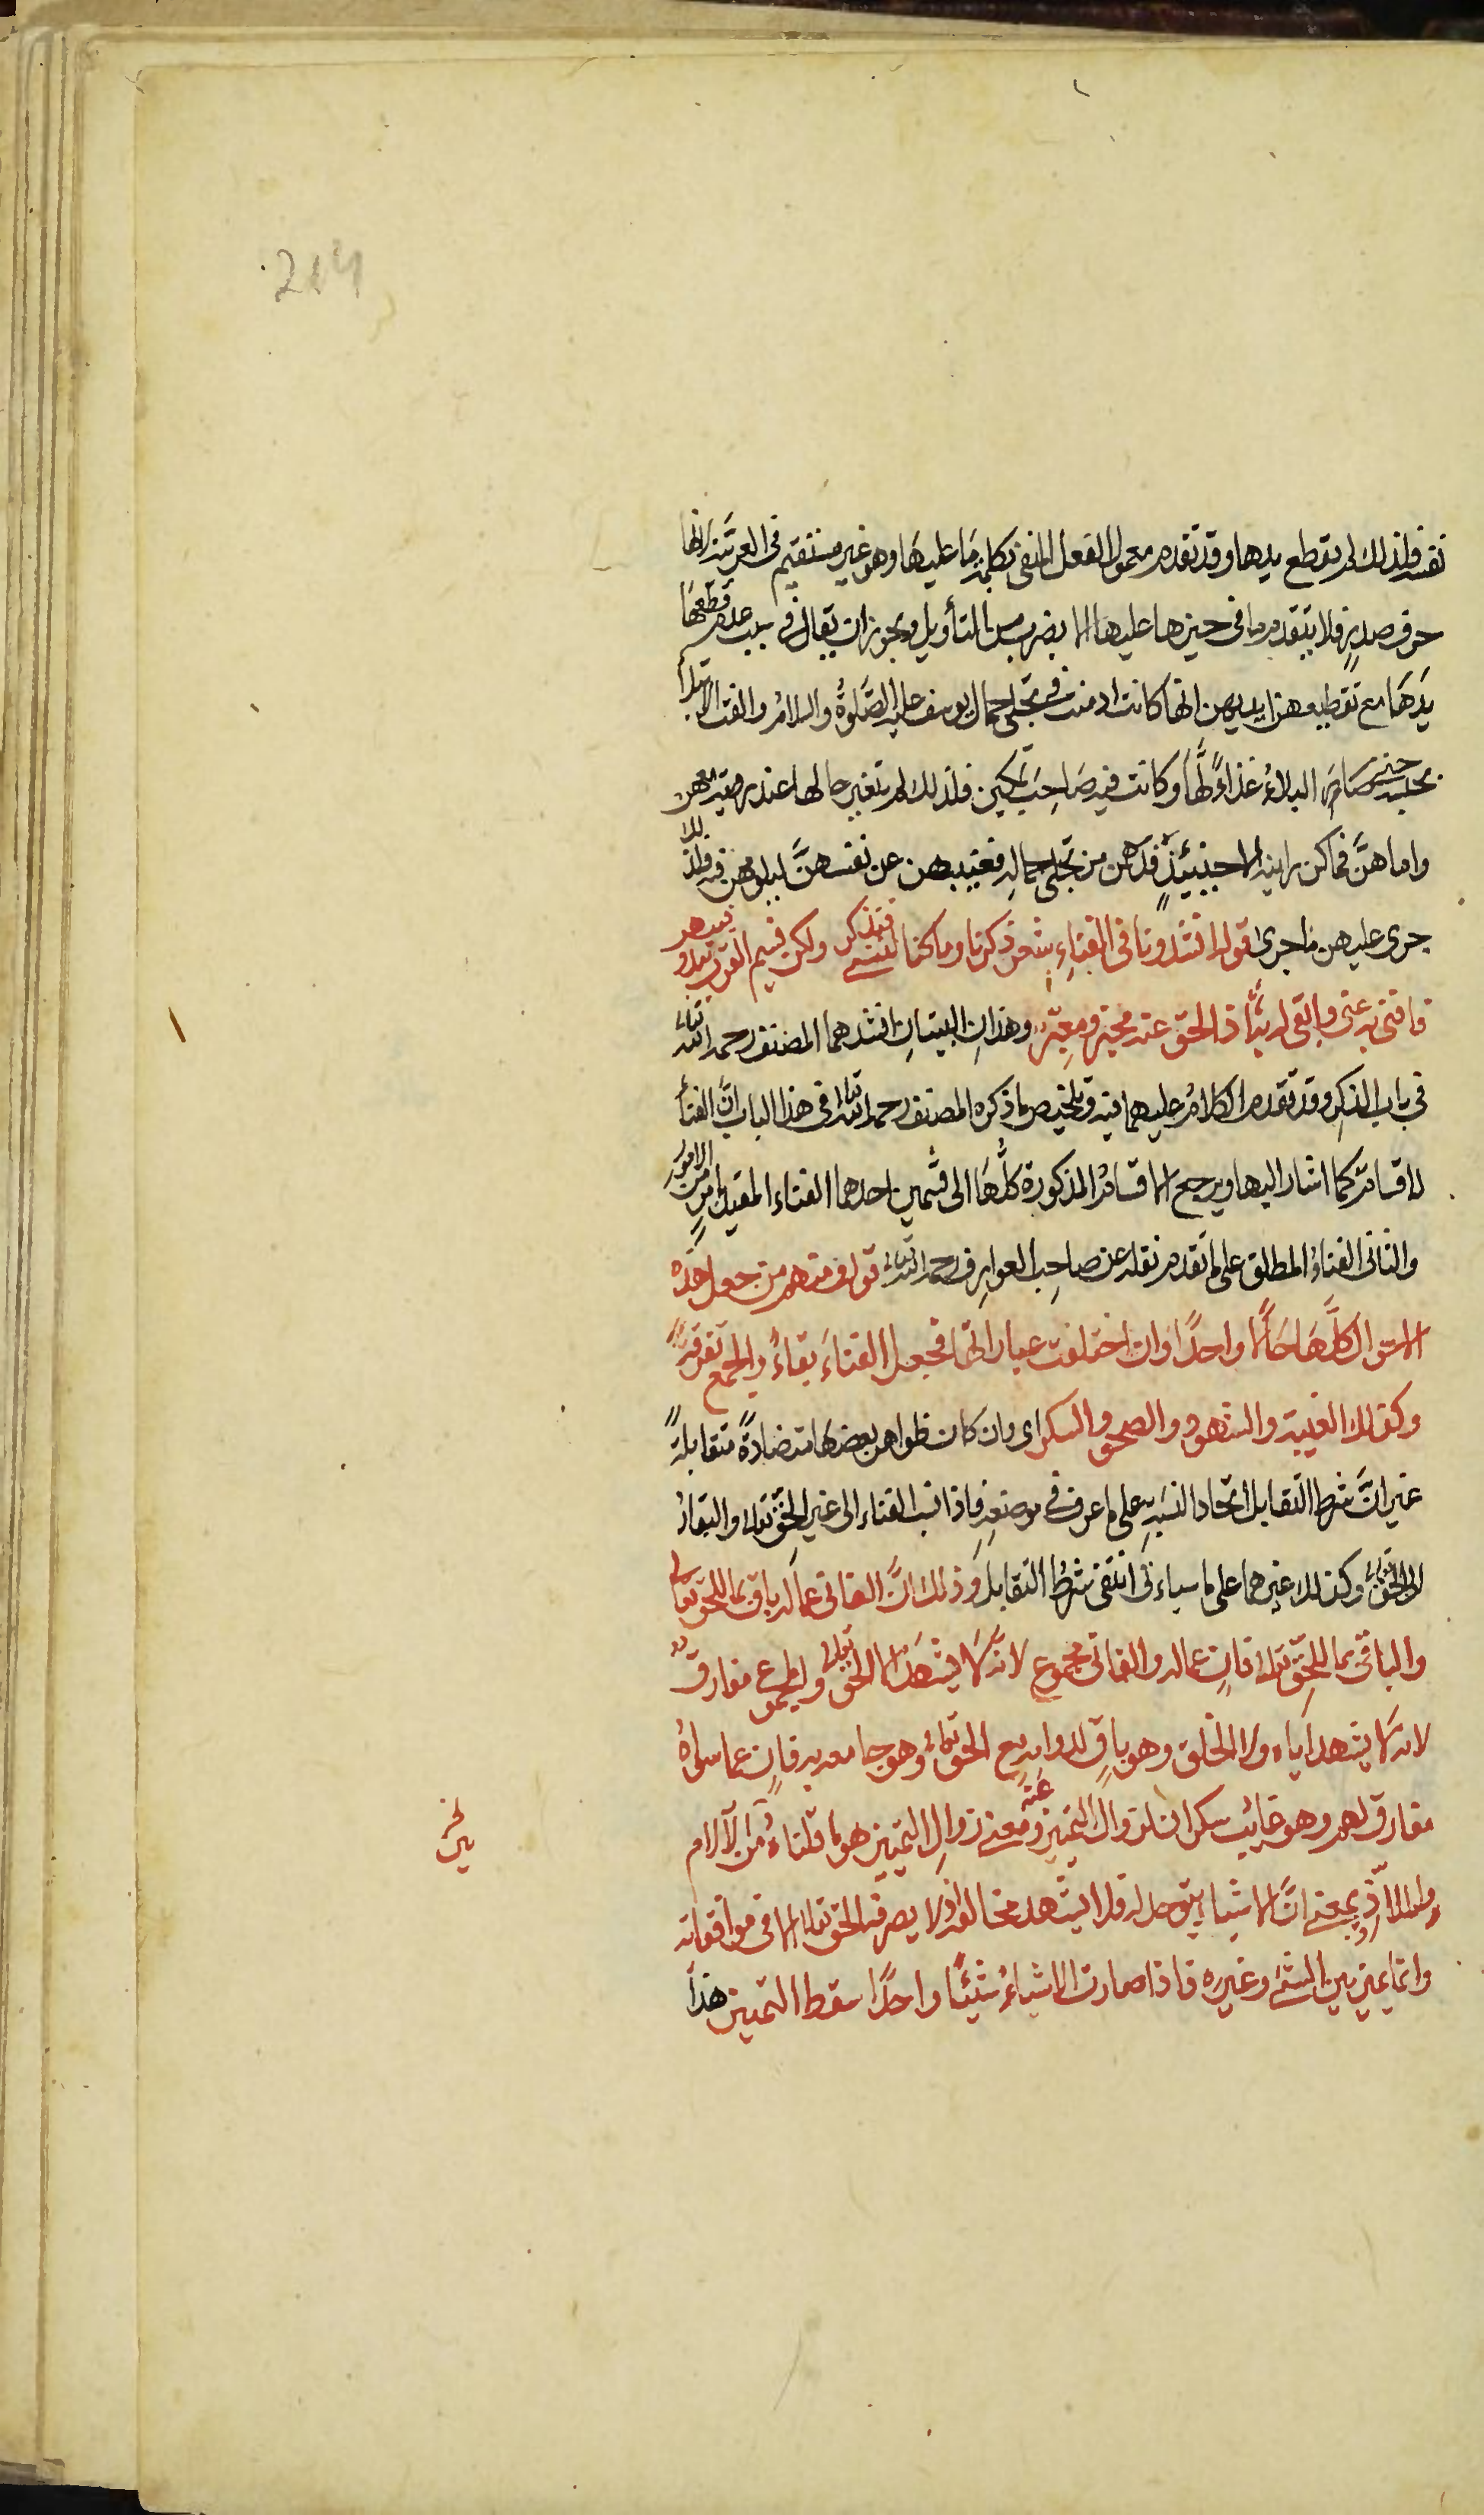 214
نفسه فلذلك لم تقطع يدها وقد تقدم معمول الفعل المنفى بكلمة ما عليها وهو غير مستقيم فى العربية لانها
حرف صدر فلا يتقدم ما فى حيزها عليها الا بضرب من التأويل ويجوز ان يقال فى سبب عدم قطعها
يدها مع تقطيعهن ايديهن انها كانت ادمنت فى تجلى جمال يوسف عليه الصلوة والسلام والفت
حتى صار البلاء غذاء لها وكانت فيه صاحب تمكين فلذلك لم تتغير حالها عند رؤيتهن
واما هن فما كن راينه الا حينئذ من تجلى جماله فغيبهن عن نفسهن
جرى عليهن ما جرى قوله انشدونا فى الفناء شعر ذكرنا وما كنا لننسى فنذكر ولكن نسيم القرب يبدو فيبهر
فافنى به عنى وابقى له به اذ الحق عنه مخبر ومعبر وهذان البيتان انشدهما المصنف رحمه الله تعالى
فى باب الذكر وقد تقدم الكلام عليهما فيه وتلخيص ما ذكره المصنف رحمه الله تعالى فى هذا الباب ان الفناء
له اقسام كما اشار اليها ويرجع الاقسام المذكورة كلها الى قسمين احدهما الفناء المقيد بامر من الامور
والثانى الفناء المطلق على ما تقدم نقله عن صاحب العوارف رحمه الله تعالى قوله ومنهم من جعل هذه
الاحوال كلها حالا واحدا وان اختلفت عباراتها فجعل الفناء بقاء والجمع تفرقة
وكذلك الغيبة والشهود والصحو والسكر اى وان كان ظواهر بعضها متضادة متقابلة
غير ان شرط التقابل اتحاد النسبة على ما عرف فى موضعه فاذا نسب الفناء الى غير الحق تعالى والبقاء
الى الحق تعالى وكذلك غيرهما على ما سياءتى انتفى شرط التقابل وذلك ان الفانى عما له باق بما للحق تعالى
والباقى بما للحق تعالى فان عما له والفانى مجموع لانه لا يشهد الا الحق تعالى والمجموع مفارق
لانه لا يشهد اياه ولا الخلق وهو باق لدوامه مع الحق تعالى وهو جامعه به فان عما سواه
مفارق لهم وهو غايب سكران لزوال التمييز عنه ومعنى زوال التمييز هو ما قلناه من الآلام
والملاذ بمعنى ان الاشياء يتوحد له فلا يشهد مخالفة اذ لا يصرفه الحق تعالى الا فى موافقاته
وانما يميز بين الشئ وغيره فاذا صارت الاشياء شيئا واحدا سقط التمييز هذا